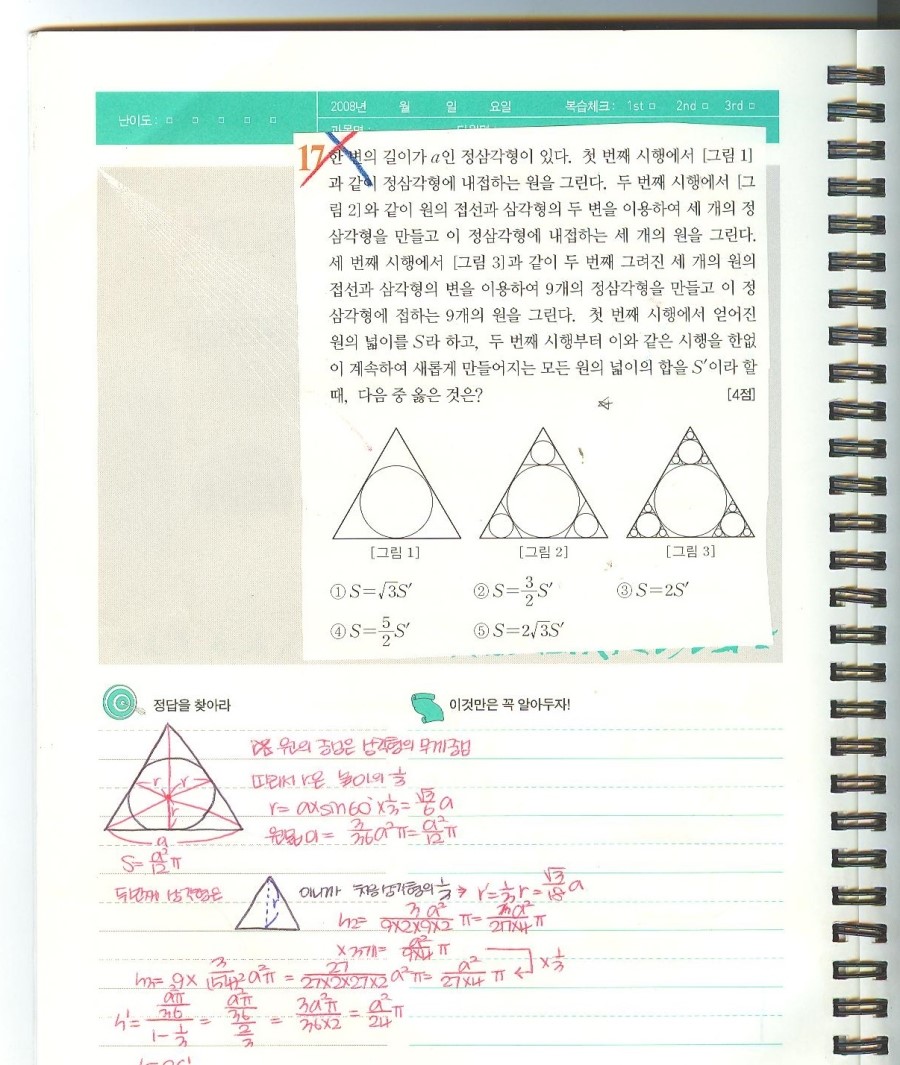 난이도 :
2008년 월 일 요일 복습체크 : 1st 2nd 3rd
17 한 변의 길이가 a인 정삼각형이 있다. 첫 번째 시행에서 [그림 1]
과 같이 정삼각형에 내접하는 원을 그린다. 두 번째 시행에서 [그
림 2]와 같이 원의 접선과 삼각형의 두 변을 이용하여 세 개의 정
삼각형을 만들고 이 정삼각형에 내접하는 세 개의 원을 그린다.
세 번째 시행에서 [그림 3]과 같이 두 번째 그려진 세 개의 원의
접선과 삼각형의 변을 이용하여 9개의 정삼각형을 만들고 이 정
삼각형에 접하는 9개의 원을 그린다. 첫 번째 시행에서 얻어진
원의 넓이를 S라 하고, 두 번째 시행부터 이와 같은 시행을 한없
이 계속하여 새롭게 만들어지는 모든 원의 넓이의 합을 S′이라 할
때, 다음 중 옳은 것은? [4점]
[그림 1] [그림 2] [그림 3]
① S=√3S′ ② S=3/2S′ ③ S=2S′
④ S=5/2S′ ⑤ S=2√3S′
정답을 찾아라 이것만은 꼭 알아두자!
원의 중심은 삼각형의 무게중심
따라서 r은 높이의 1/3
r r
r
r= a×sin60°×1/3=√3/6 a
a
= 3/36 a²π= a²/12 π
S= a²/12 π
두번째 삼각형은 이니까 처음 삼각형의 1/3 → r′=1/3 r=√3/18 a
= 3a²/9×2×9×2 π= 3a²/27×4 π
×3개= a²/9×4 π
×1/3
= 9× 3/(54)² a²π = 27/27×2×27×2 a²π= a²/27×4 π
= 3a²π/36×2 = a²/24 π